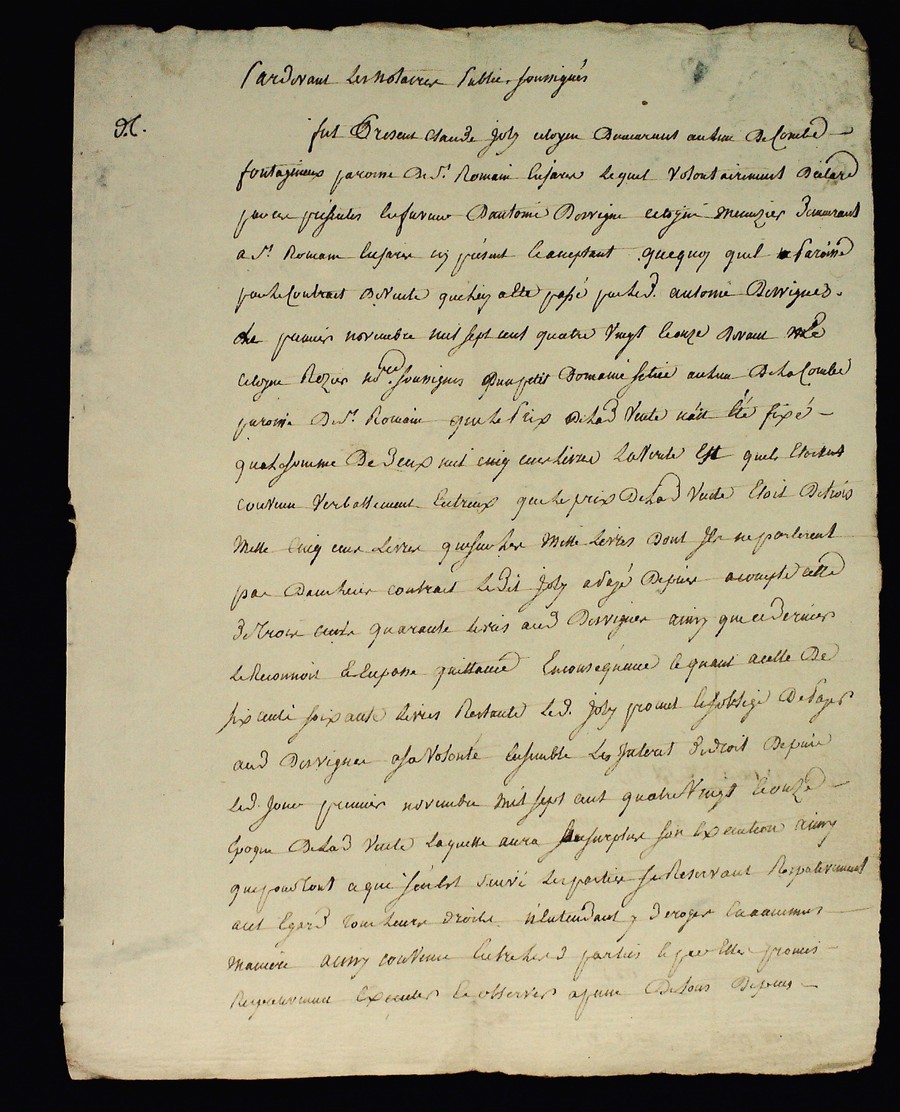 Pardevant les notaires Publics soussignés
fut Présent Claude Joly citoyen Demeurant au lieu De Combe
fontagineux paroisse De St. Romain Lequel Volontairement Déclare
par ces présentes en faveur Dantoine Dervigne citoyen Menuzier Demeurant
a St. Romain icy présent acceptant quoyquoy quil Paroisse
par le Contrat De Vente quelui a été passé par le d. antoine Dervignes
le premier novembre mil sept cent quatre Vingt et onze Devant
citoyen Rozier nore. soussignés Dun petit Domaine scitué au lieu De la Combe
paroisse De St. Romain que le Prix De lad Vente nait Été fixé
qua la somme De Deux mil cinq cens Livres La Verité Est quils Etoient
convenu Verballement Entreux que le prix De lad Vente Etoit De trois
Mille Cinq cens Livres que sur les Mille Livres Dont Ils ne parlerent
pas Dans leur contrat Ledit Joly a Payé Depuis acompte celle
De Trois cents quarante Livres aud Dervignes ainsy que ce Dernier
Le Reconnoit Et En passe quittance En conséquence Et quant a celle De
six cent soixante Livres Restante Le d. Joly promet Et soblige De Payer
aud Dervignes a sa Volonté Ensemble Les Interet De Droit Depuis
Led. Jour premier novembre Mil sept cent quatre Vingt Et onze
Epoque De lad Vente Laquelle aura au surplus son Execution ainsy
que pour Tout ce qui sen est suivi Les parties se Reservant Respectivement
a cet Egard Tous leurs droits nentendant y Deroger En aucunes
Maniere ainsy convenu Entre les d parties Et par Elles promis
Respectivement Executer Et observer a peine De tous Depens